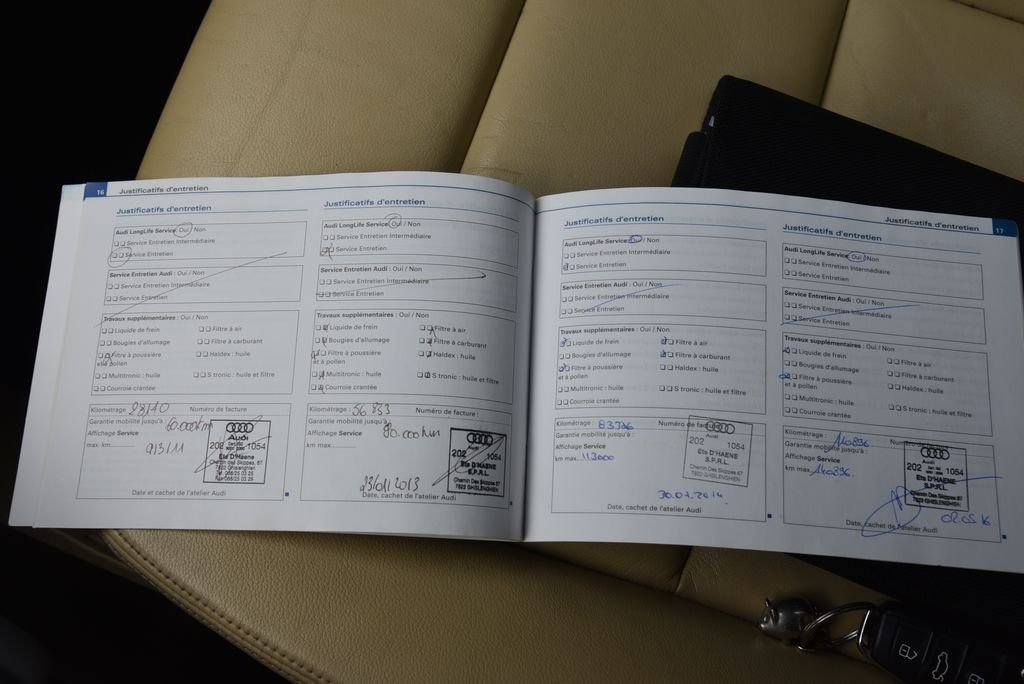 16 Justificatifs d'entretien
Justificatifs d'entretien
Audi LongLife Service: Oui / Non
Service Entretien Intermédiaire
Service Entretien
Service Entretien Audi : Oui / Non
Service Entretien Intermédiaire
Service Entretien
Travaux supplémentaires : Oui / Non
Liquide de frein
Filtre à air
Bougies d'allumage
Filtre à carburant
Filtre à poussière et à pollen
Haldex : huile
Multitronic : huile
S tronic : huile et filtre
Courroie crantée
Kilométrage : Numéro de facture
Garantie mobilité jusqu'à : 60.000km
Affichage Service
km max. 9/3/11
Audi
202 1054
Ets D'HAENE
S.P.R.L.
Chemin Des Skippes, 67
7822 GHISLENGHIEN
Date et cachet de l'atelier Audi
Justificatifs d'entretien
Audi LongLife Service: Oui / Non
Service Entretien Intermédiaire
Service Entretien
Service Entretien Audi : Oui / Non
Service Entretien Intermédiaire
Service Entretien
Travaux supplémentaires : Oui / Non
Liquide de frein
Filtre à air
Bougies d'allumage
Filtre à carburant
Filtre à poussière et à pollen
Haldex : huile
Multitronic : huile
S tronic : huile et filtre
Courroie crantée
Kilométrage : 56 833 Numéro de facture :
Garantie mobilité jusqu'à :
Affichage Service 80.000km
km max.
202 1054
Ets D'HAENE
S.P.R.L.
Chemin Des Skippes 67
7822 GHISLENGHIEN
23/01/2013
Date, cachet de l'atelier Audi
Justificatifs d'entretien 17
Justificatifs d'entretien
Audi LongLife Service: Oui / Non
Service Entretien Intermédiaire
Service Entretien
Service Entretien Audi : Oui / Non
Service Entretien Intermédiaire
Service Entretien
Travaux supplémentaires : Oui / Non
Liquide de frein
Filtre à air
Bougies d'allumage
Filtre à carburant
Filtre à poussière et à pollen
Haldex : huile
Multitronic : huile
S tronic : huile et filtre
Courroie crantée
Kilométrage : Numéro de facture
Garantie mobilité jusqu'à :
Affichage Service
km max. 113000
Audi
202 1054
Ets D'HAENE
S.P.R.L.
Chemin Des Skippes 67
7822 GHISLENGHIEN
Date, cachet de l'atelier Audi
Justificatifs d'entretien
Audi LongLife Service: Oui / Non
Service Entretien Intermédiaire
Service Entretien
Service Entretien Audi : Oui / Non
Service Entretien Intermédiaire
Service Entretien
Travaux supplémentaires : Oui / Non
Liquide de frein
Filtre à air
Bougies d'allumage
Filtre à carburant
Filtre à poussière et à pollen
Haldex : huile
Multitronic : huile
S tronic : huile et filtre
Courroie crantée
Kilométrage : Numéro de
Garantie mobilité jusqu'à :
Affichage Service
km max.
Audi
202 1054
Ets D'HAENE
S.P.R.L.
Chemin Des Skippes 67
7822 GHISLENGHIEN
02.05.16
Date, cachet de l'atelier Audi